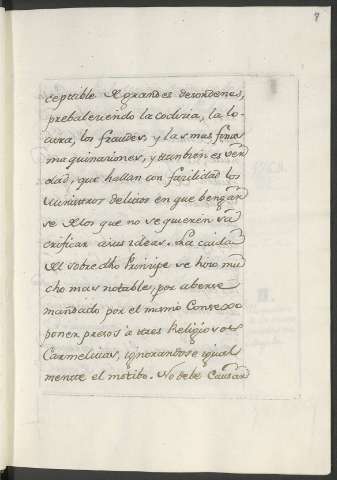 8
ceptible de grandes desordenes,
prebaleciendo la codicia, la lo-
cura, los fraudes, y las mas feas
maquinaciones, y tambien es ver
dad, que hallan con facilidad los
Ministros delitos en que bengar
se de los que no se quieren sa
crificar a sus ideas. La caida
del sobre dho Principe se hizo mu
cho mas notable, por aberse
mandado por el mismo Consejo
poner presos a tres Religiosos
Carmelitas, ignorandose igual
mentte el motibo. No debe Causar